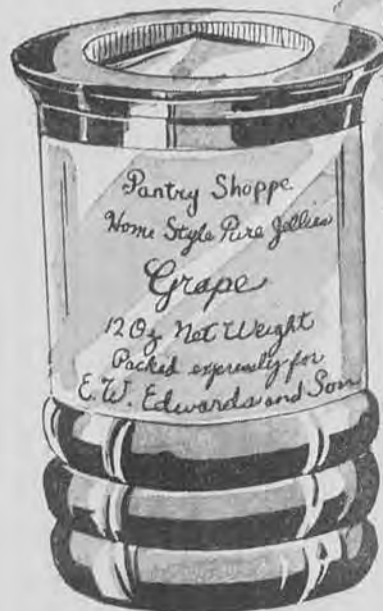 Pantry Shoppe
Home Style Pure Jellies
Grape
12 Oz Net Weight
Packed expressly for
E.W. Edwards and Son